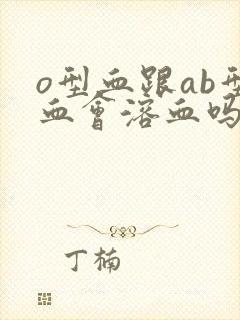 o型血跟ab型
血会溶血吗
丁楠